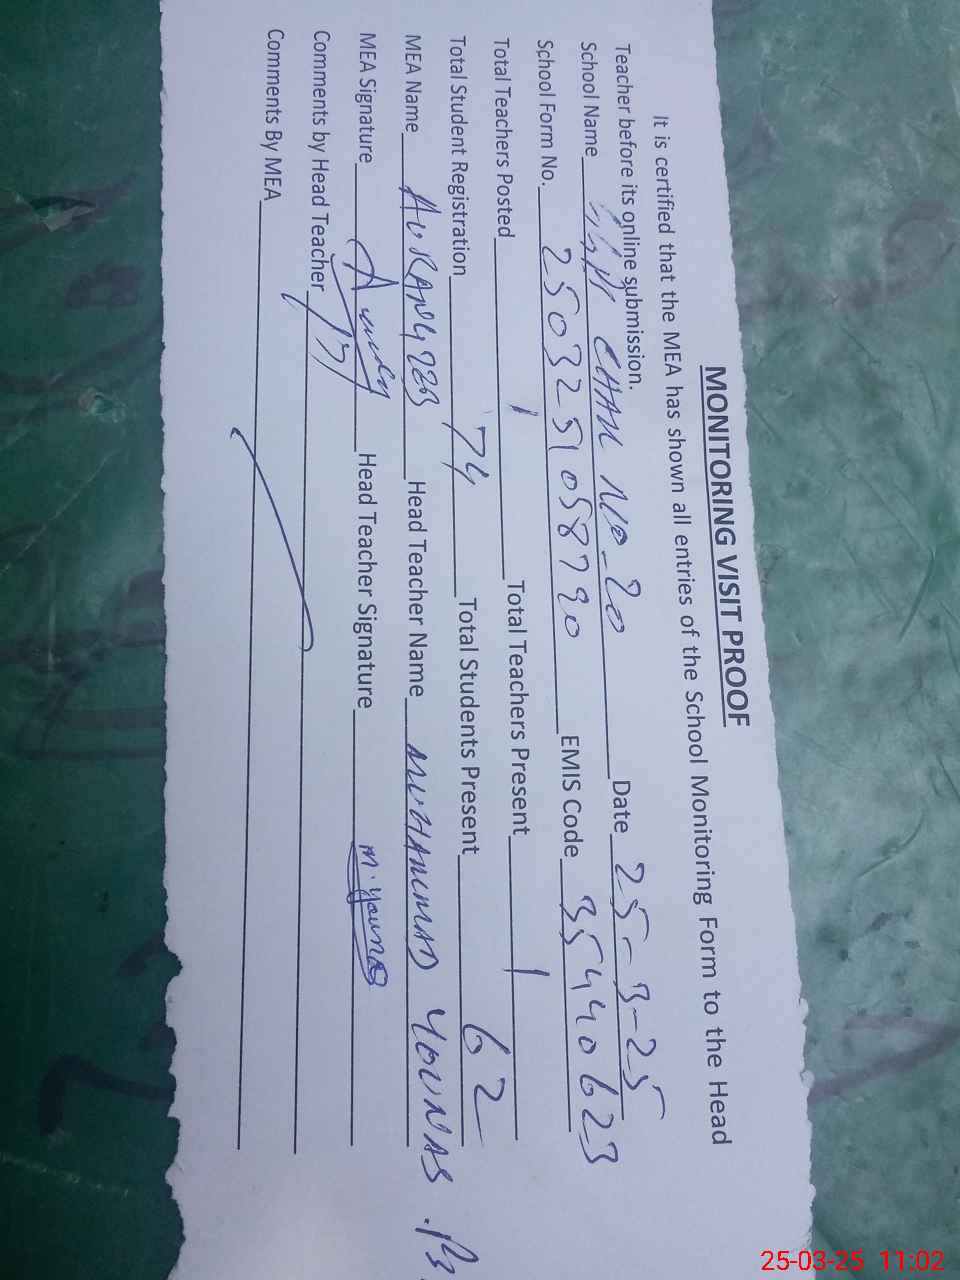 MONITORING VISIT PROOF
It is certified that the MEA has shown all entries of the School Monitoring Form to the Head
Teacher before its online submission.
School Name CHAK NO-20 Date 25-3-25
School Form No. 2503251058790 EMIS Code 35440623
Total Teachers Posted 1 Total Teachers Present 1
Total Student Registration 74 Total Students Present 62
MEA Name AURANGZEB Head Teacher Name MUHAMMAD YOUNAS
MEA Signature Head Teacher Signature M. Younas
Comments by Head Teacher
Comments By MEA
25-03-25 11:02